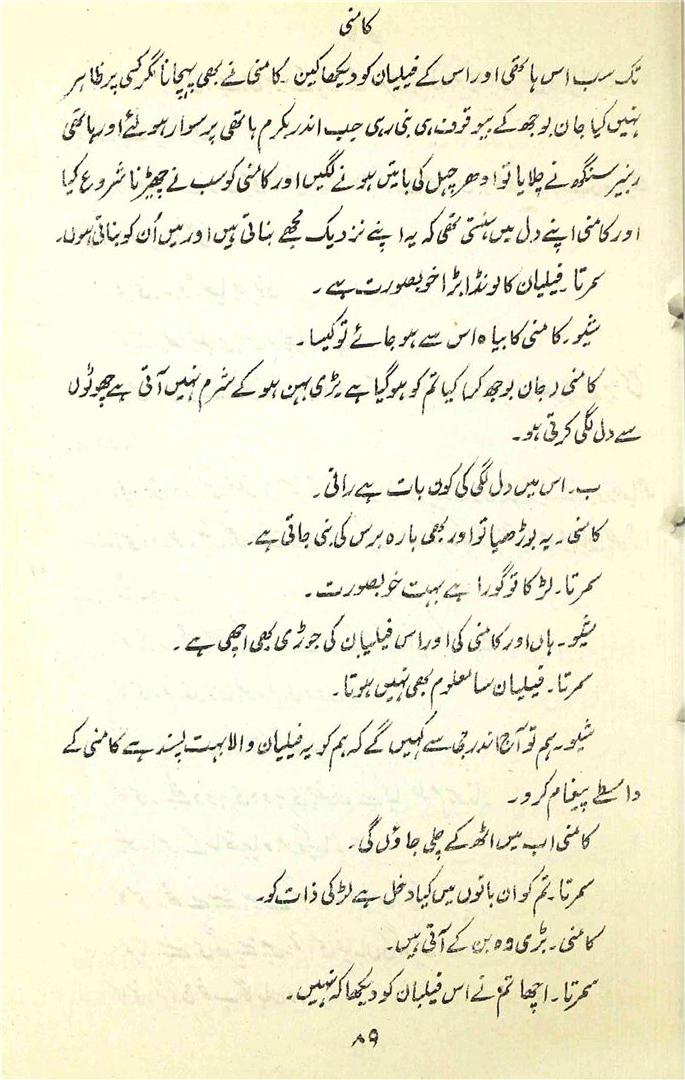 کامنی
تک سب اس ہاتھی اور اس کے فیلبان کو دیکھا کیں۔ کامنی نے بھی پہچانا مگر کسی پر ظاہر
نہیں کیا جان بوجھ کے بیوقوف ہی بنی رہی جب اندر بکرم ہاتھی پر سوار ہو لئے اور ہاتھی
رنبیر سنگھ نے چلایا تو ادھر چہل کی باتیں ہونے لگیں اور کامنی کو سب نے چھیڑنا شروع کیا
اور کامنی اپنے دل میں ہنستی تھی کہ یہ اپنے نزدیک مجھے بناتی ہیں اور میں اُن کو بناتی ہوں۔
سمرتا۔ فیلبان کا لونڈا بڑا خوبصورت ہے۔
شیو۔ کامنی کا بیاہ اس سے ہو جائے تو کیسا۔
کامنی (جان بوجھ کر) کیا تم کو ہو گیا ہے بڑی بہن ہو کے شرم نہیں آتی ہے چھوٹوں
سے دل لگی کرتی ہو۔
ب۔ اس میں دل لگی کی کون بات ہے رانی۔
کامنی۔ یہ بوڑھیا تو اور بھی بارہ برس کی بنی جاتی ہے۔
سمرتا۔ لڑکا تو گورا ہے بہت خوبصورت۔
شیو۔ ہاں اور کامنی کی اور اس فیلبان کی جوڑی بھی اچھی ہے۔
سمرتا۔ فیلبان سا معلوم بھی نہیں ہوتا۔
شیو۔ ہم تو آج اندر جی سے کہیں گے کہ ہم کو یہ فیلبان والا بہت پسند ہے کامنی کے
واسطے پیغام کرو۔
کامنی اب میں اٹھ کے چلی جاؤں گی۔
سمرتا۔ تم کو ان باتوں میں کیا دخل ہے لڑکی ذات کو۔
کامنی۔ بڑی وہ بن کے آتی ہیں۔
سمرتا۔ اچھا تم نے اس فیلبان کو دیکھا کہ نہیں۔
۸۹